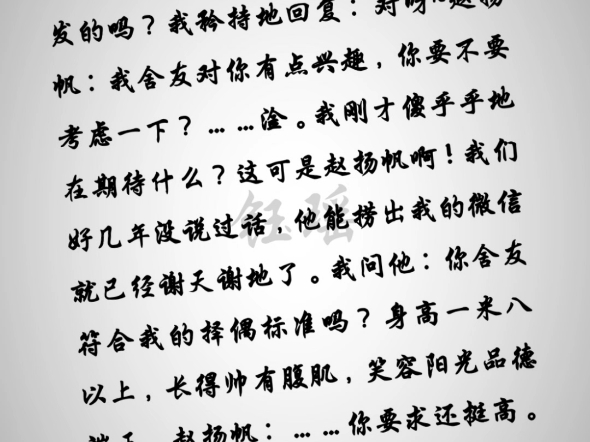 发的吗？我矜持地回复：对呀~赵扬
帆：我舍友对你有点兴趣，你要不要
考虑一下？……淦。我刚才傻乎乎地
在期待什么？这可是赵扬帆啊！我们
好几年没说过话，他能捞出我的微信
就已经谢天谢地了。我问他：你舍友
符合我的择偶标准吗？身高一米八
以上，长得帅有腹肌，笑容阳光品德
端正。赵扬帆：……你要求还挺高。
钰瑶